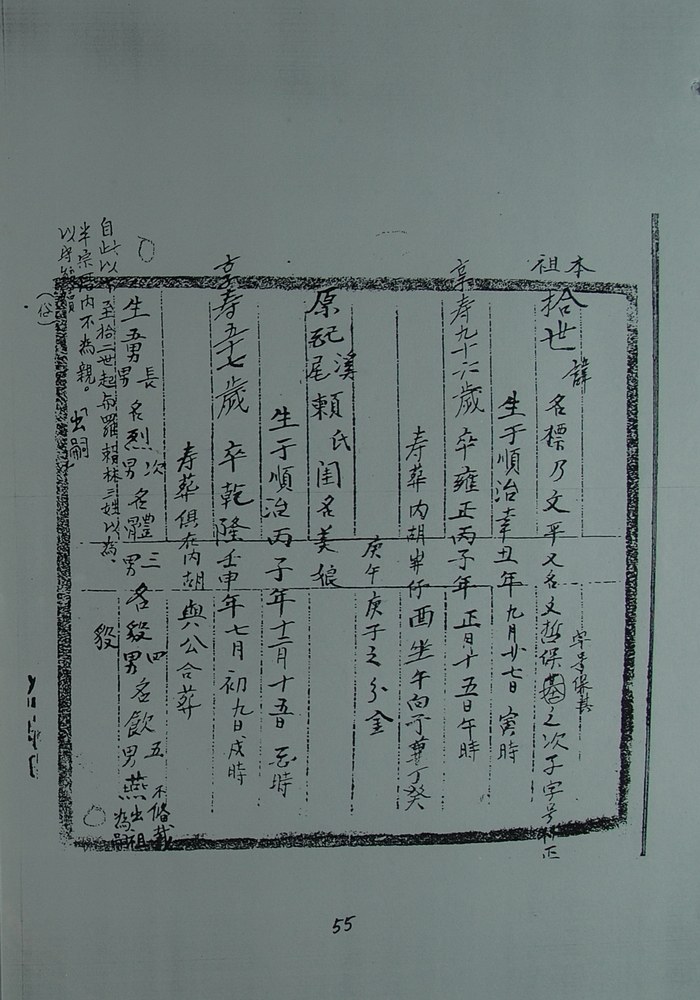 本祖
拾世 諱 名標乃文平又名文哲保之次子字号
字号保其
生于順治辛丑年九月廿七日寅時
享寿九十六歳 卒雍正丙子年正日十五日午時
寿葬内胡 酉坐午向子兼丁癸
庚午庚子之分金
原配尾溪賴氏闺名美娘
生于順治丙子年十二月十五日 時
享寿五十七歳 卒乾隆壬申年七月初九日戌時
寿葬俱在内胡與公合葬
生五男 長男名烈 次男名體 三男名毅 四男名飲 五男燕出祖為嗣
不俻載
毅
出嗣
自此以下至拾二世起 羅賴林三姓以為
半宗 内不為親。
(俗)
55